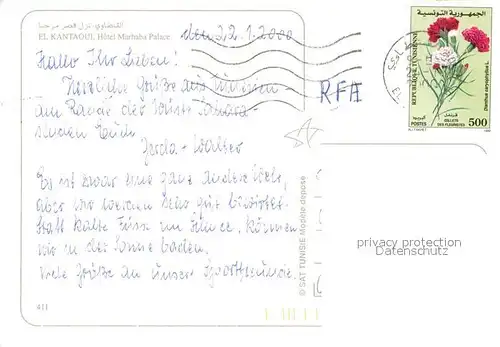 القنطاوي، نزل قصر مرحبا
EL KANTAOUI, Hôtel Marhaba Palace
den 22.1.2000
Hallo Ihr Lieben!
Herzliche Grüße aus Tunesien -
am Rande der Wüste Sahara -
senden Euch
Gerda + Walter
Es ist zwar eine ganz andere Welt,
aber wir werden sehr gut bewirtet.
Statt kalte Füße im Schnee, können
wir in der Sonne baden.
Viele Grüße an unsere Sportfreunde.
411
RFA
© SAT TUNISIE Modèle déposé
الجمهورية التونسية
REPUBLIQUE TUNISIENNE
Dianthus caryophyllus L.
قرنفل
البريد
POSTES
OEILLETS
DES FLEURISTES
500
privacy protection
Datenschutz